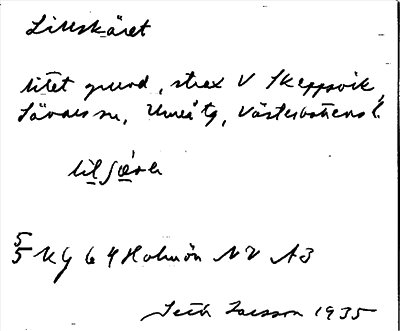 Lillskäret
litet grund, strax V Skeppsvik,
Sävar sn, Umeå tg, Västerbottens l.
lilsǽrɘ
5/5 Kg 64 Holmön NV A3
Seth Larsson 1935